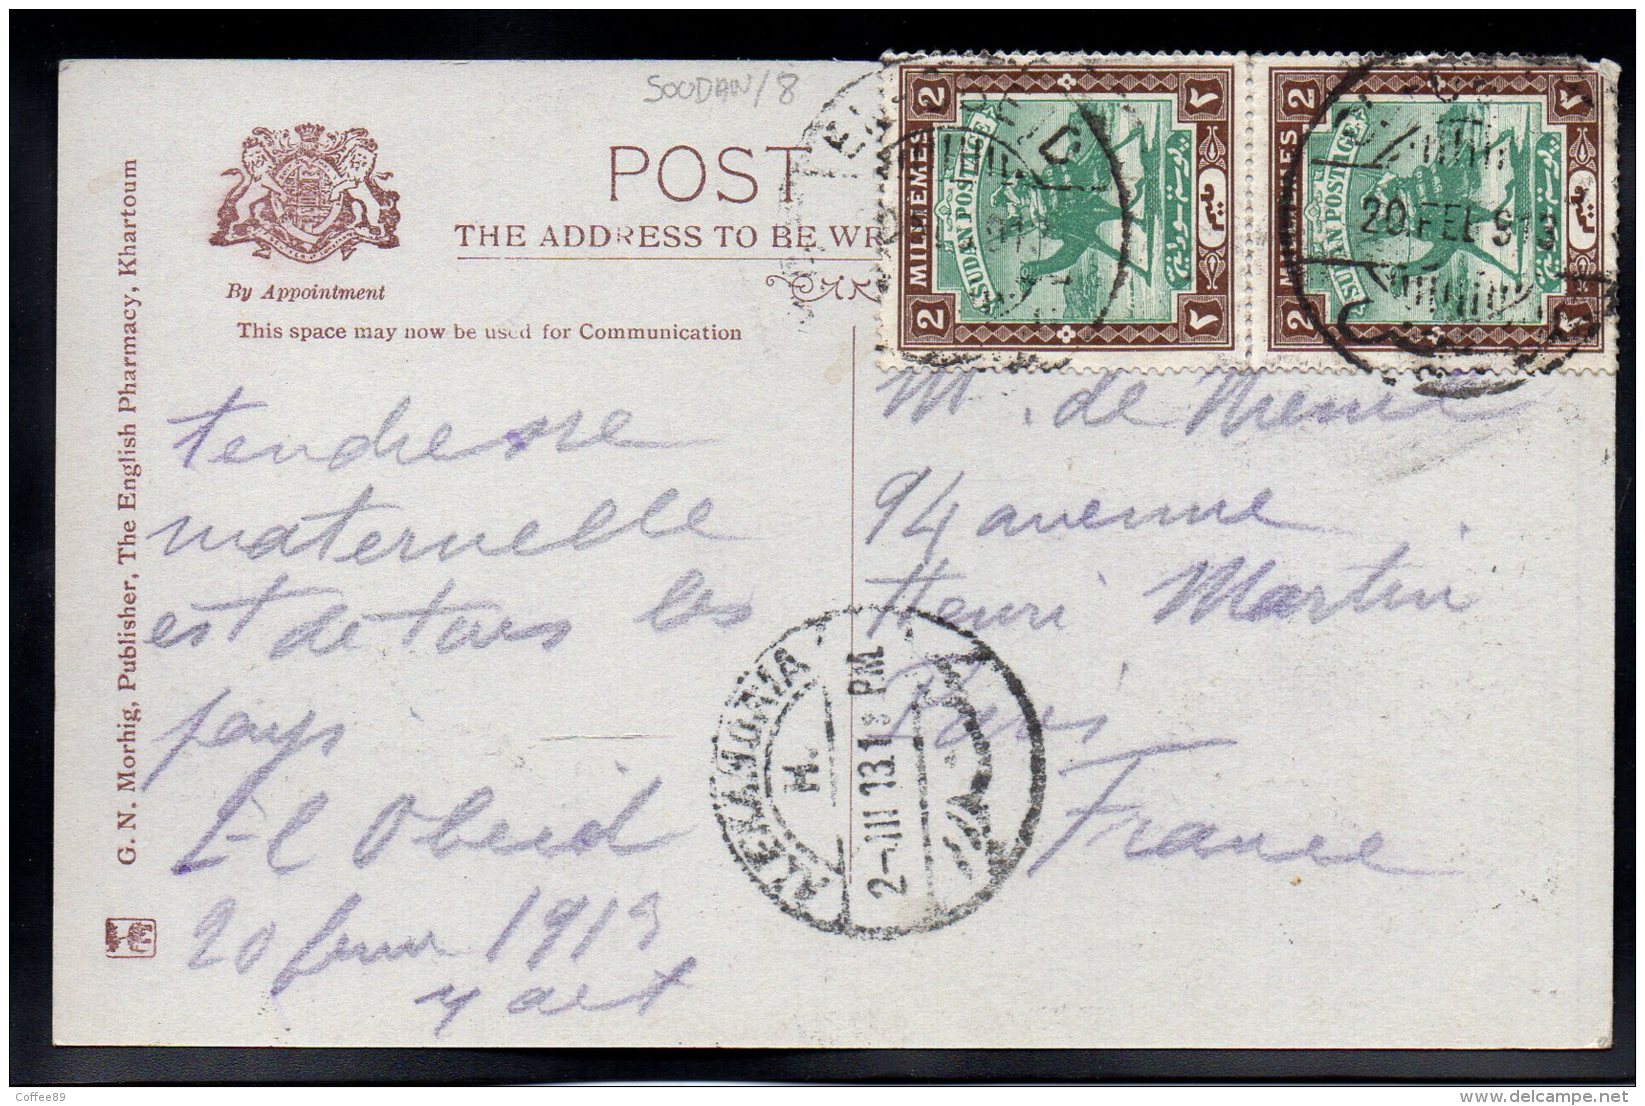 SOODAN/8
POST
THE ADDRESS TO BE WR
By Appointment
This space may now be used for Communication
G. N. Morhig, Publisher, The English Pharmacy, Khartoum
2
٢
MILLIEMES
SUDAN POSTAGE
2
٢
2
٢
MILLIEMES
SUDAN POSTAGE
2
٢
20 FEB 913
tendresse
maternelle
est de tous les
pays
El Obeid
20 1913
M. de
94 avenue
Henri Martin
Paris
France
ALEXANDRIA
H.
2-III 13.1 PM
Coffee89
www.delcampe.net